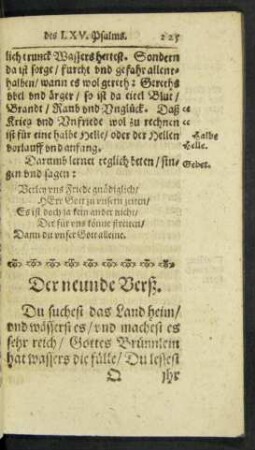 des LXV. Psalms. 225
lich trunck Wassers hettest. Sondern
da ist sorge/ furcht vnd gefahr allent-
halben/ wann es wol gereth: Gereths
vbel vnd ärger/ so ist da eitel Blut/
Brandt/ Raub vnd Vnglück. Daß
Krieg vnd Vnfriede wol zu rechnen
ist für eine halbe Helle/ oder der Hellen
vorlauff vnd anfang.
Halbe
Helle.
Darumb lernet teglich beten/ sin-
gen vnd sagen:
Gebet.
Verley vns Friede gnädiglich/
HErr Gott zu vnsern zeiten/
Es ist doch ja kein ander nicht/
Der für vns könne streiten/
Dann du vnser Gott alleine.
Der neunde Verß.
Du suchest das Land heim/
vnd wässerst es/ vnd machest es
sehr reich/ Gottes Brünnlein
hat wassers die fülle/ Du lessest
Q ihr